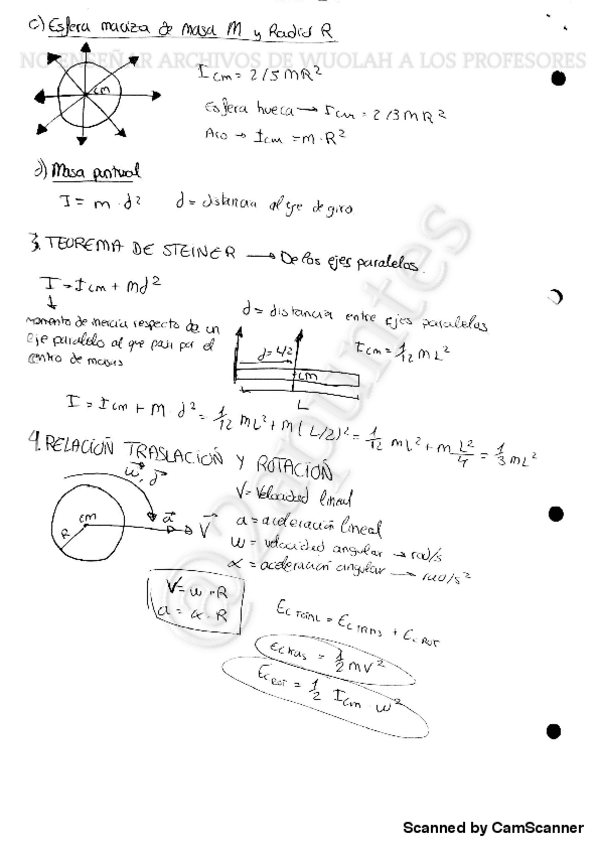 c) Esfera maciza de masa M y Radio R
NO ENSEÑAR ARCHIVOS DE WUOLAH A LOS PROFESORES
cm
Icm = 2/5 MR²
Esfera hueca → Icm = 2/3 MR²
Aro → Icm = M·R²
d) Masa puntual
I = m·d² d = distancia al eje de giro
3. TEOREMA DE STEINER → De los ejes paralelos.
I = Icm + md²
momento de inercia respecto de un
eje paralelo al que pasa por el
centro de masas
d = distancia entre ejes paralelos
d = L/2
Icm = 1/12 ML²
cm
L
I = Icm + M·d² = 1/12 ML² + M(L/2)² = 1/12 ML² + M L²/4 = 1/3 ML²
4. RELACIÓN TRASLACIÓN Y ROTACIÓN
cm
R
a
V
V = Velocidad lineal
a = aceleración lineal
w = velocidad angular → rad/s
α = aceleración angular → rad/s²
V = w·R
a = α·R
Ec TOTAL = Ec TRAS + Ec ROT
Ec TRAS = 1/2 MV²
Ec ROT = 1/2 Icm·w²
@2apuntes
Scanned by CamScanner